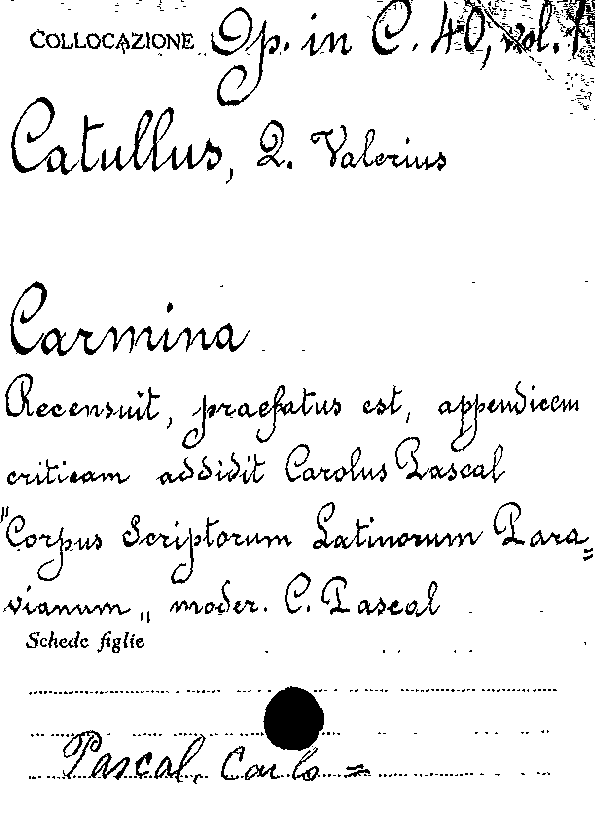 COLLOCAZIONE Op. in C. 40, vol. 1
Catullus, Q. Valerius
Carmina
Recensuit, praefatus est, appendicem
criticam addidit Carolus Pascal
"Corpus Scriptorum Latinorum Para=
vianum„ moder. C. Pascal
Schede figlie
Pascal, Carlo =